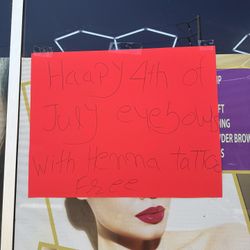 Haapy 4th of
July eyebows
with Henna tattoo
Free
UP
FT
ING
DER BROW